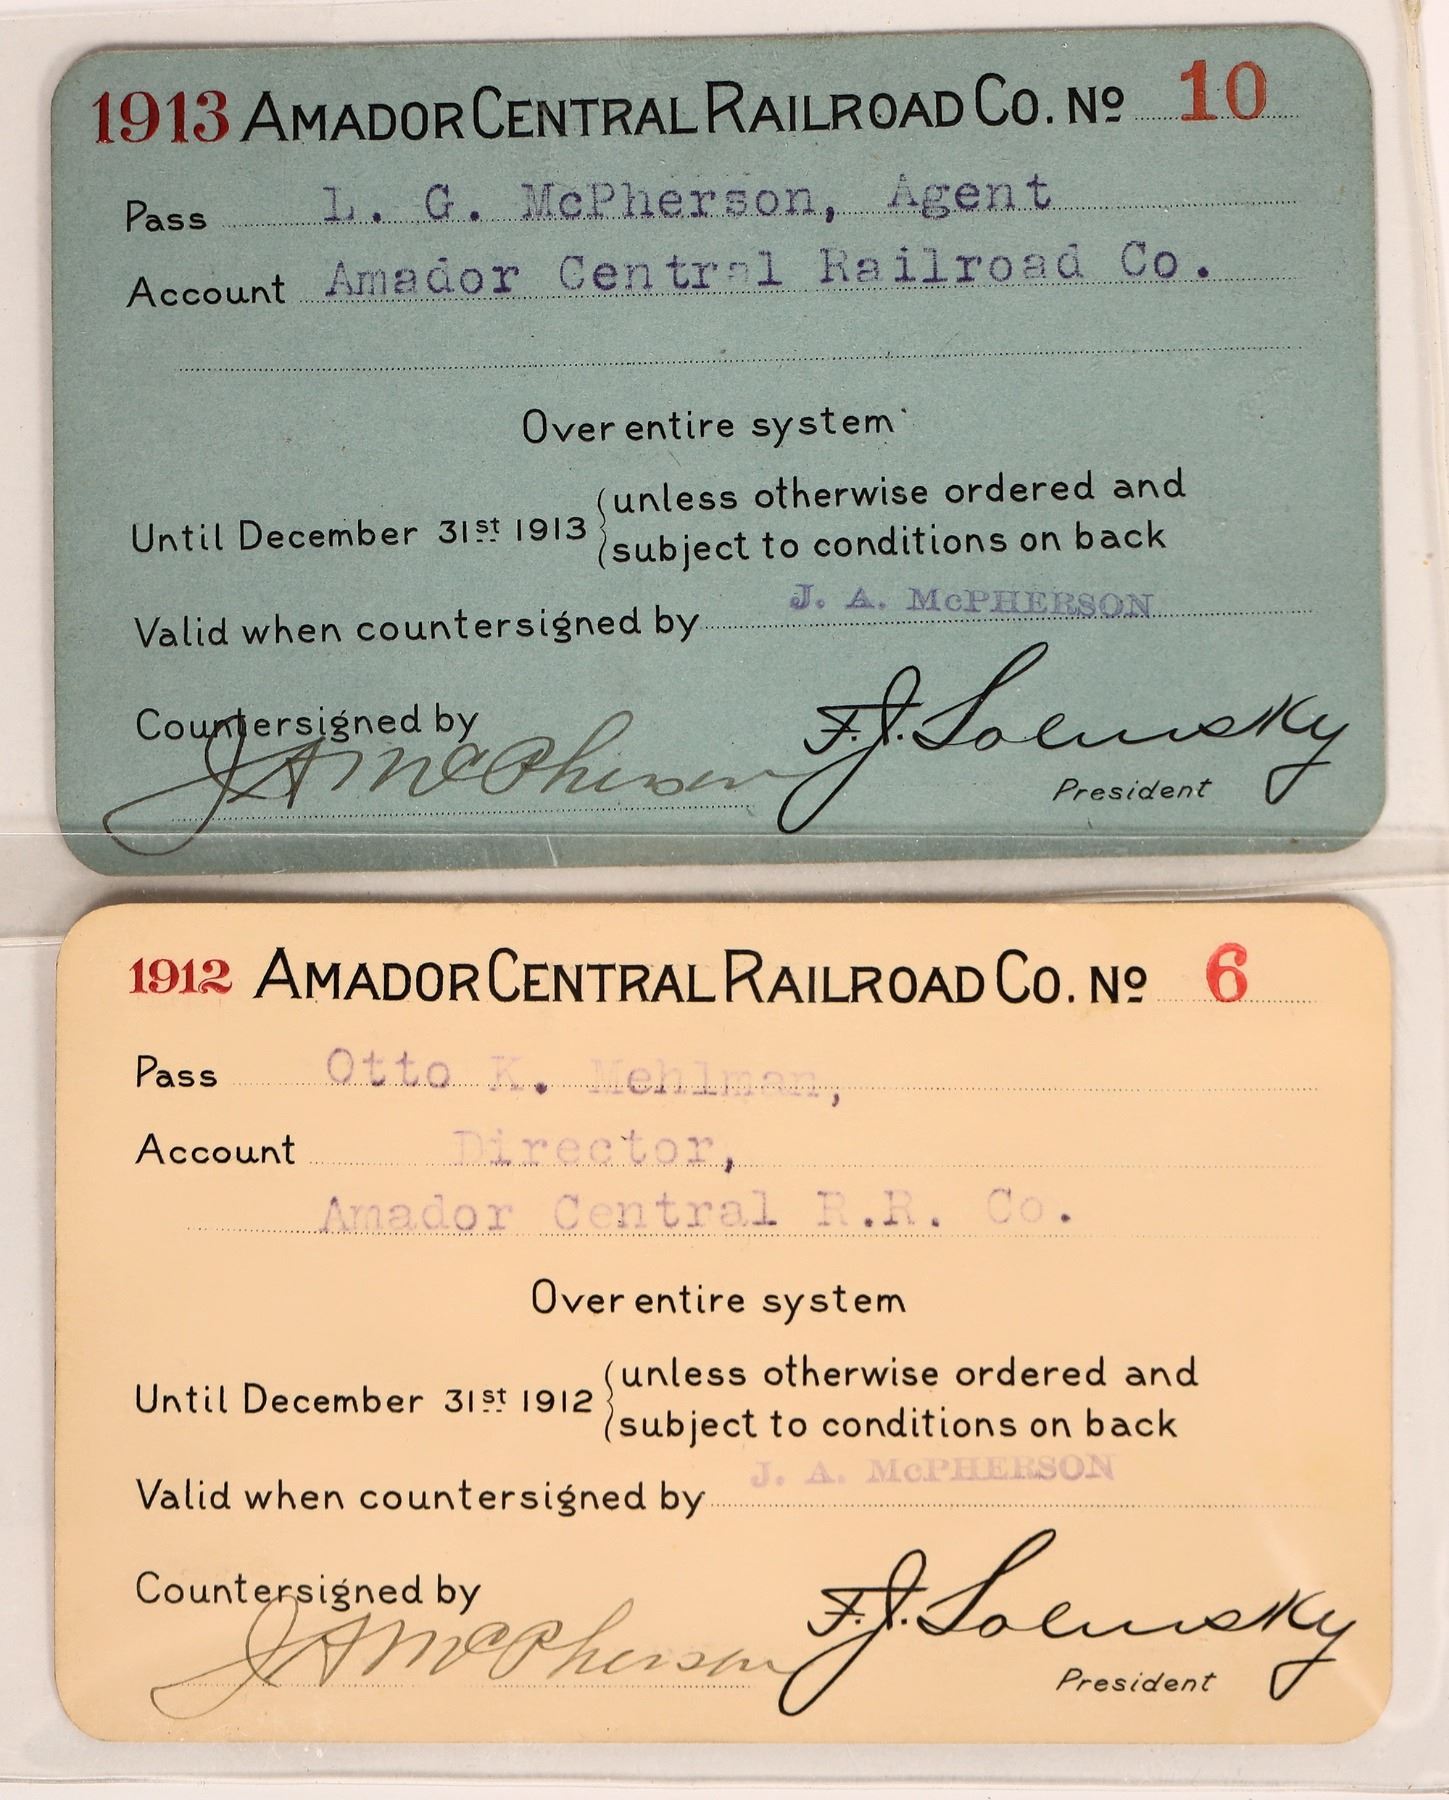 1913 AMADOR CENTRAL RAILROAD CO. Nº 10
Pass L. G. McPherson, Agent
Account Amador Central Railroad Co.
Over entire system
Until December 31st 1913 { unless otherwise ordered and
subject to conditions on back
Valid when countersigned by J. A. McPHERSON
Countersigned by
J A McPherson
F. J. Solinsky
President
1912 AMADOR CENTRAL RAILROAD CO. Nº 6
Pass Otto K. Mehlman,
Account Director,
Amador Central R.R. Co.
Over entire system
Until December 31st 1912 { unless otherwise ordered and
subject to conditions on back
Valid when countersigned by J. A. McPHERSON
Countersigned by
J A McPherson
F. J. Solinsky
President